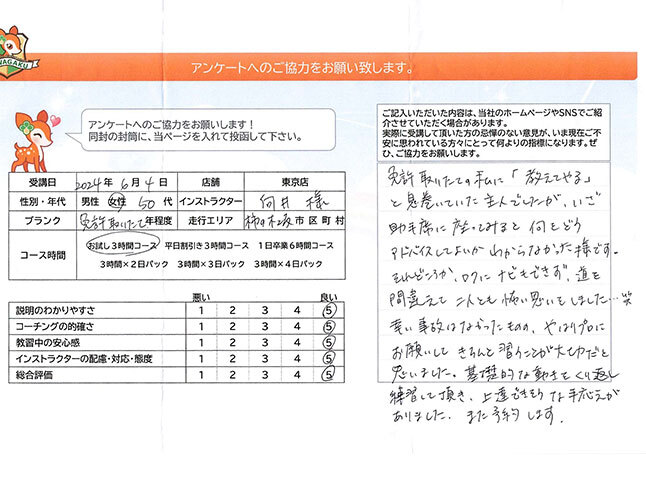 NAGAKU
アンケートへのご協力をお願い致します。
アンケートへのご協力をお願いします！
同封の封筒に、当ページを入れて投函して下さい。
受講日 2024年 6月 4日 店舗 東京店
性別・年代 男性 女性 50代 インストラクター 向井 様
ブランク 免許取りたて 年程度 走行エリア 市区町村
コース時間 お試し3時間コース 平日割引き3時間コース 1日卒業6時間コース
3時間×2日パック 3時間×3日パック 3時間×4日パック
悪い 良い
説明のわかりやすさ 1 2 3 4 5
コーチングの的確さ 1 2 3 4 5
教習中の安心感 1 2 3 4 5
インストラクターの配慮・対応・態度 1 2 3 4 5
総合評価 1 2 3 4 5
ご記入いただいた内容は、当社のホームページやSNSでご紹
介させていただく場合があります。
実際に受講して頂いた方の忌憚のない意見が、いま現在ご不
安に思われている方々にとって何よりの指標になります。ぜ
ひ、ご協力をお願いします。
免許取りたての私に「教えてやる」
と息巻いていた主人でしたが、いざ
助手席に座ってみると何をどう
アドバイスしてよいかわからなかった様です。
それどころか、ロクにナビもできず、道を
間違えて二人とも怖い思いをしました…笑
幸い事故はなかったものの、やはりプロに
お願いしてきちんと習うことが大切だと
思いました。基礎的な動きをくり返し
練習して頂き、上達できそうな手応えが
ありました。また予約します。